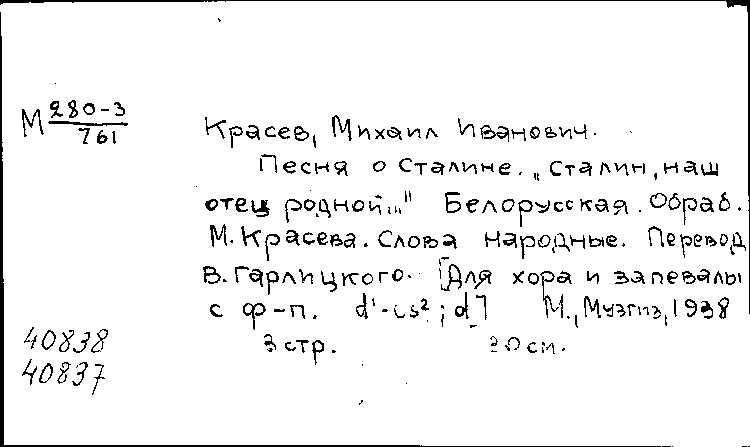 М 280-3
761
Красев, Михаил Иванович.
Песня о Сталине. „Сталин, наш
отец родной..." Белорусская. Обраб.
М. Красева. Слова народные. Перевод
В. Гарлицкого. [Для хора и запевалы
с ф-п. d¹-cis²; d] М., Музгиз, 1938
3 стр. 30 см.
40838
40837